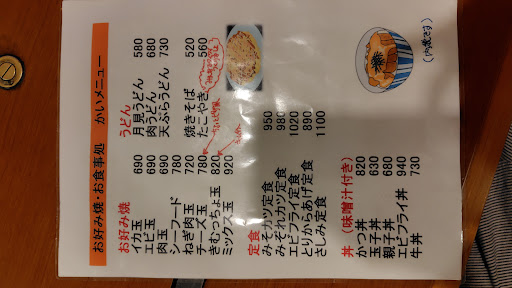 お好み焼・お食事処 かいメニュー
お好み焼
イカ玉 690
エビ玉 690
肉玉 690
シーフード 780
ねぎ肉玉 720
チーズ玉 780
きむっちょ玉 820
ミックス玉 920
うどん
月見うどん 580
肉うどん 680
天ぷらうどん 730
焼きそば 520
たこやき 560
定食
みそカツ定食 950
みぞれカツ定食 980
エビフライ定食 1020
とりからあげ定食 890
さしみ定食 1100
丼（味噌汁付き）
かつ丼 820
玉子丼 630
親子丼 680
エビフライ丼 940
牛丼 730